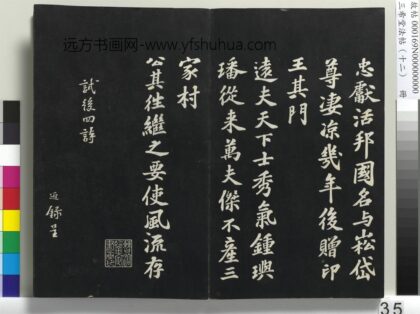 忠獻活邦國名与崧岱
尊凄凉幾年後贈印
王其門
遠夫天下士秀氣鍾璵
璠從来萬夫傑不產三
家村
公其往繼之要使風流存
試後四詩
近録呈
远方书画网-www.yfshuhua.com
故帖 000169N000000000
三希堂法帖（十二） 册
35